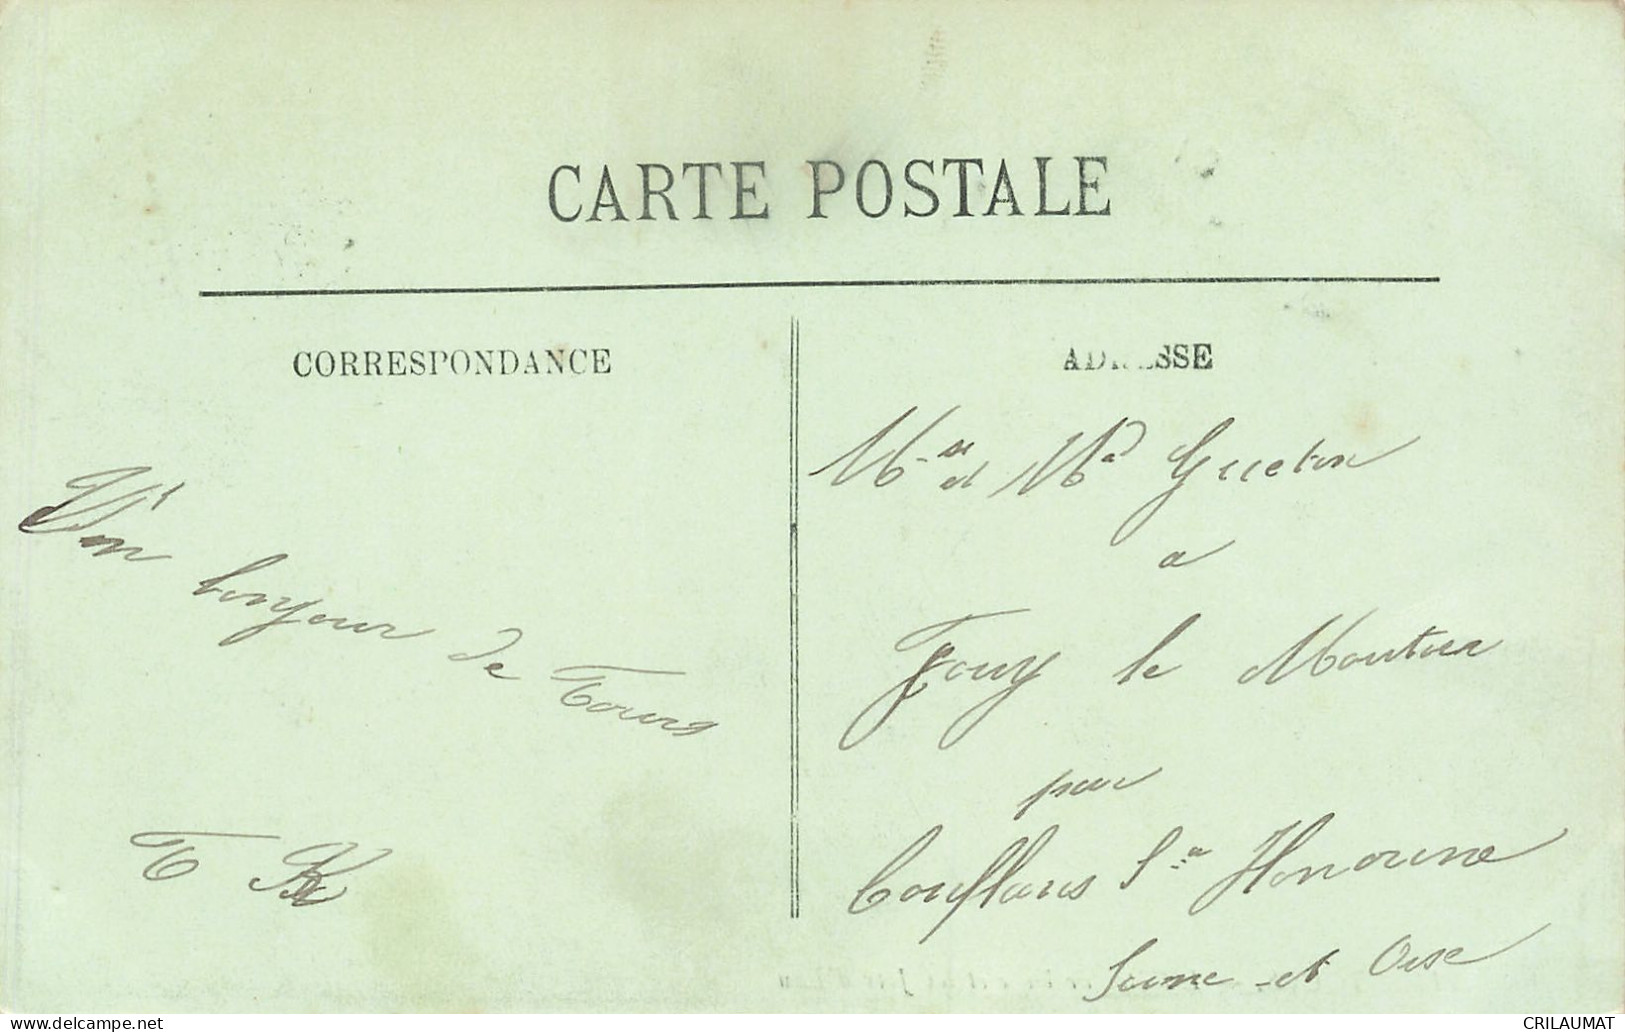 CARTE POSTALE
CORRESPONDANCE
Un bonjour de Tours
T
ADRESSE
Mr et Md Gueton
a
Jouy le Moutier
par
Conflans Ste Honorine
Seine et Oise
CRILAUMAT
www.delcampe.net